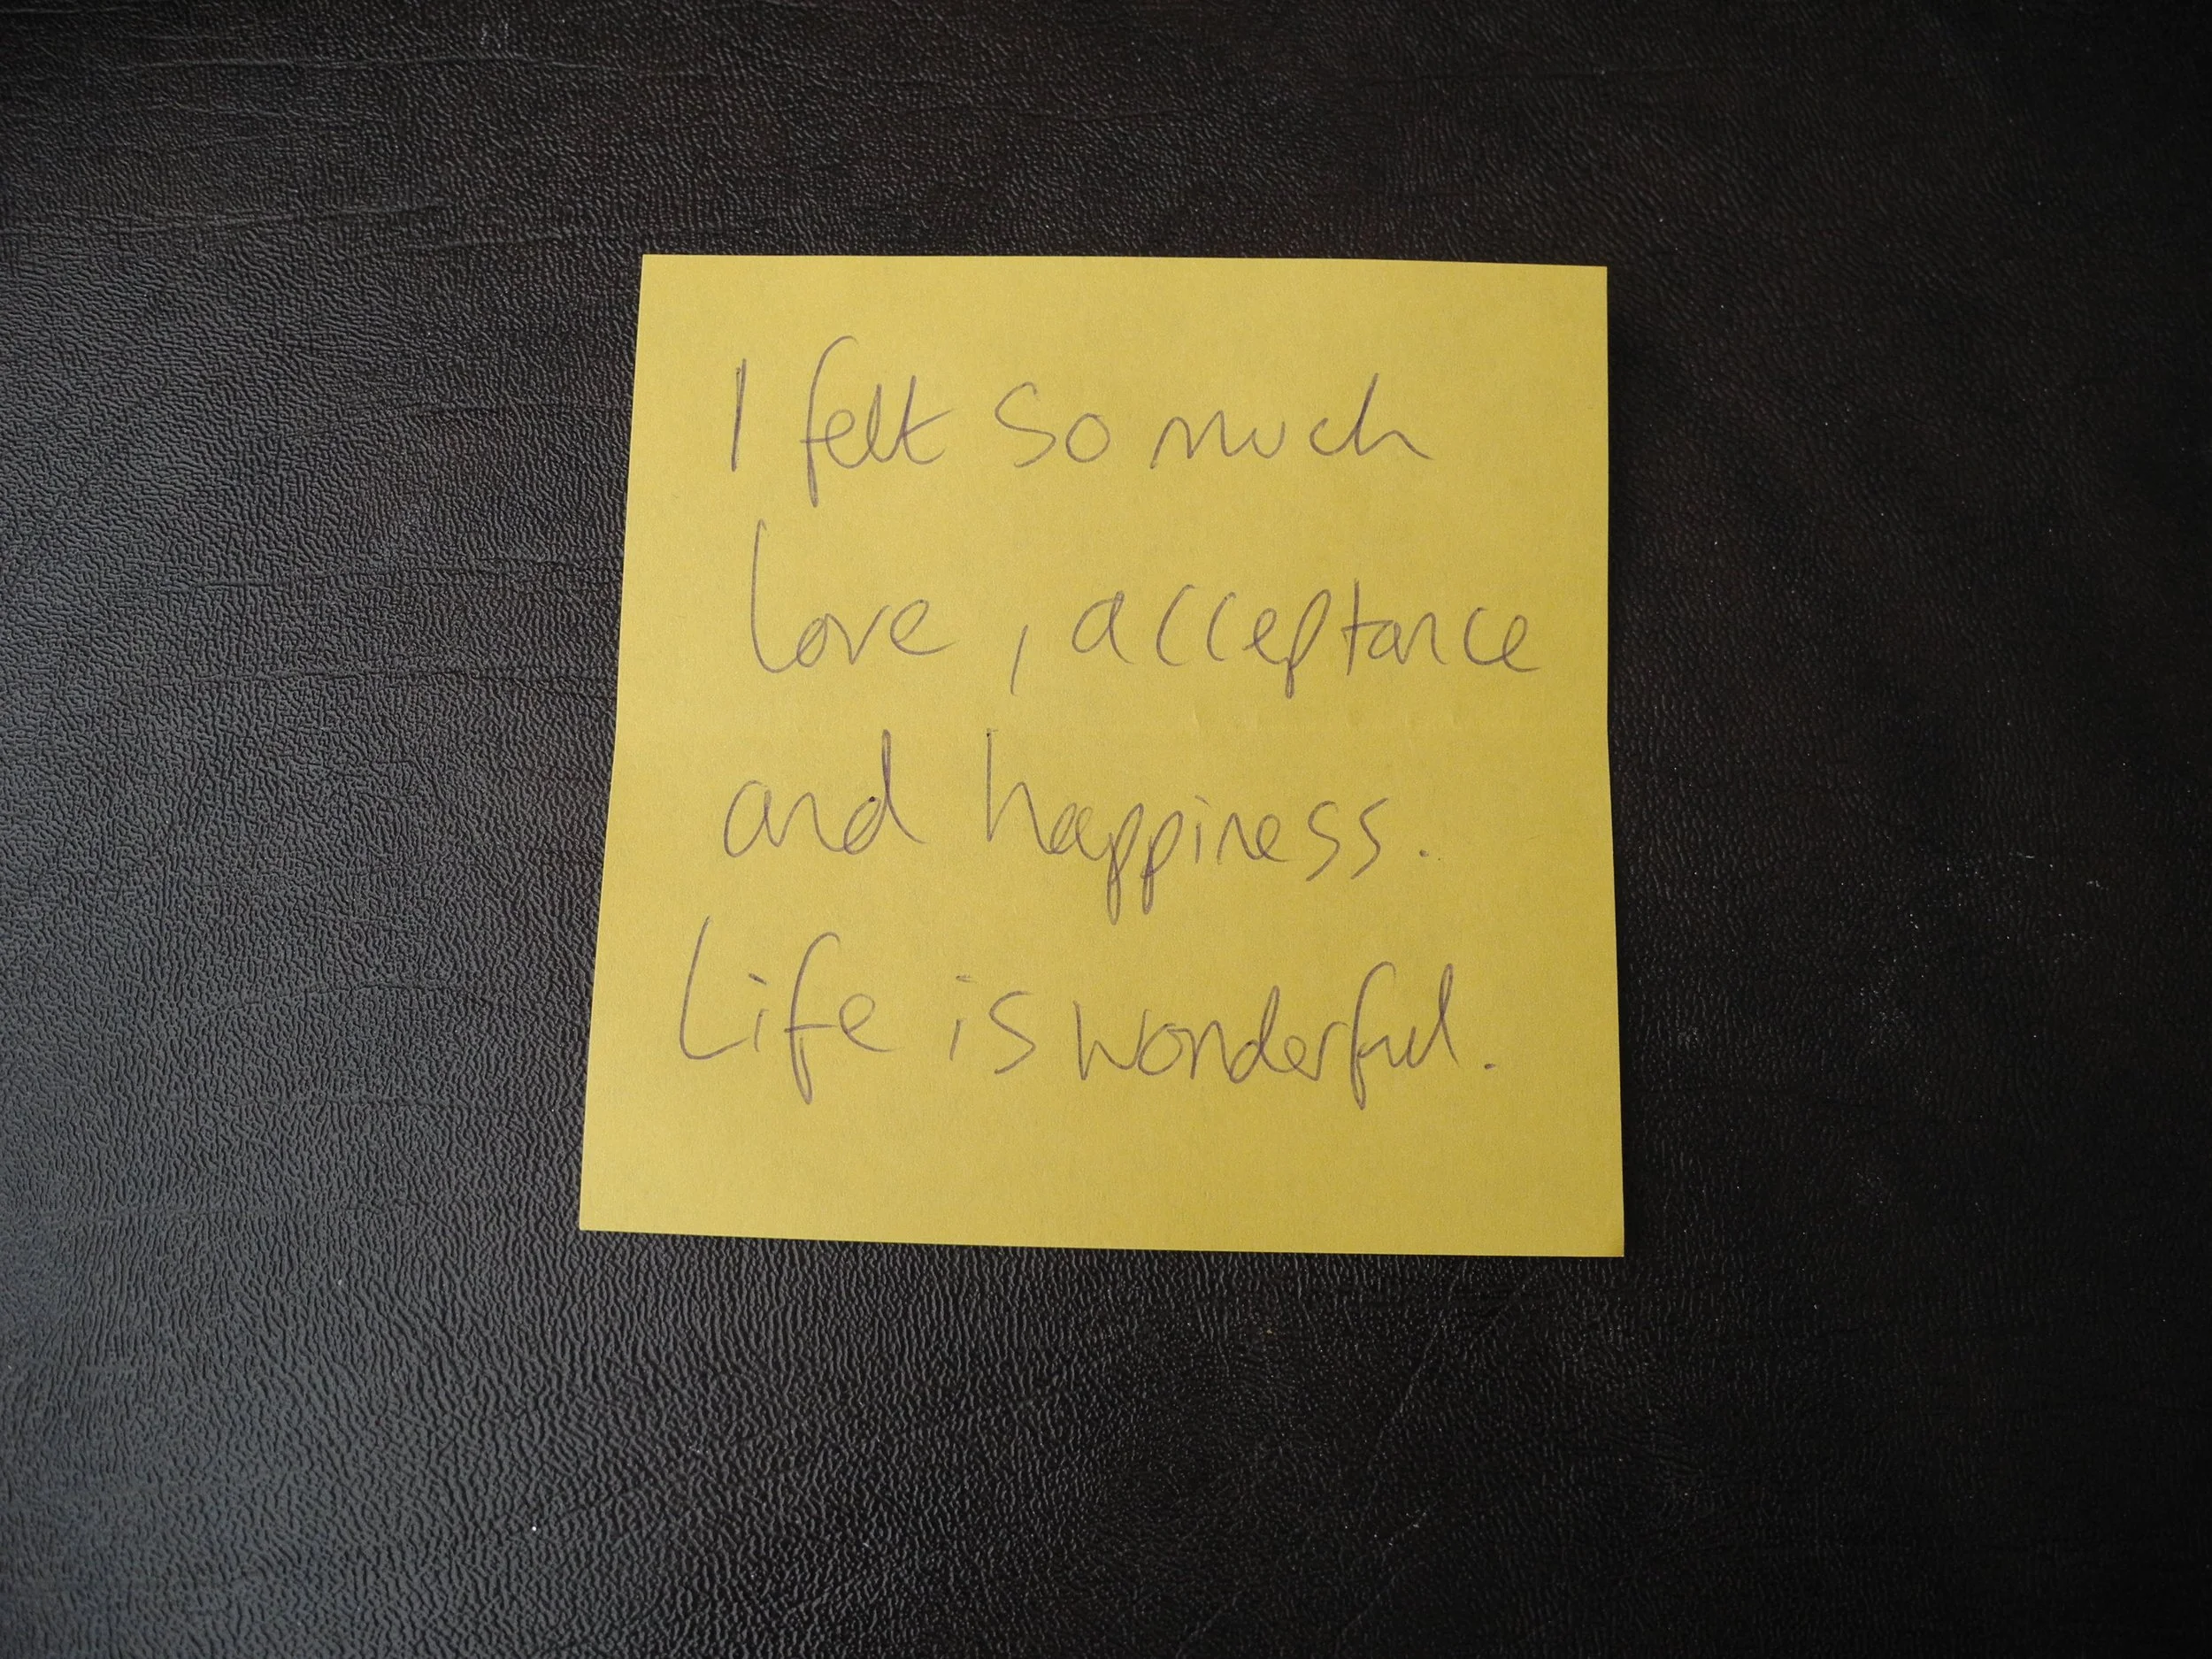 I felt so much
love, acceptance
and happiness.
Life is wonderful.